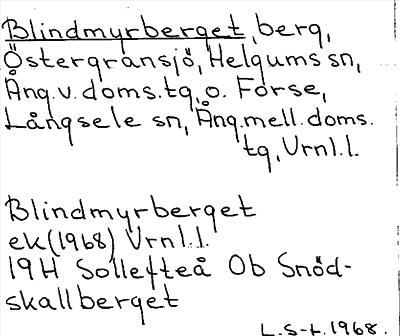 Blindmyrberget, berg,
Östergransjö, Helgums sn,
Ång.v.doms.tg, o. Forse,
Långsele sn, Ång.mell.doms.
tg, Vrnl.l.
Blindmyrberget
ek(1968) Vrnl.l.
19H Sollefteå Ob Snöd-
skallberget
L.S-t.1968.